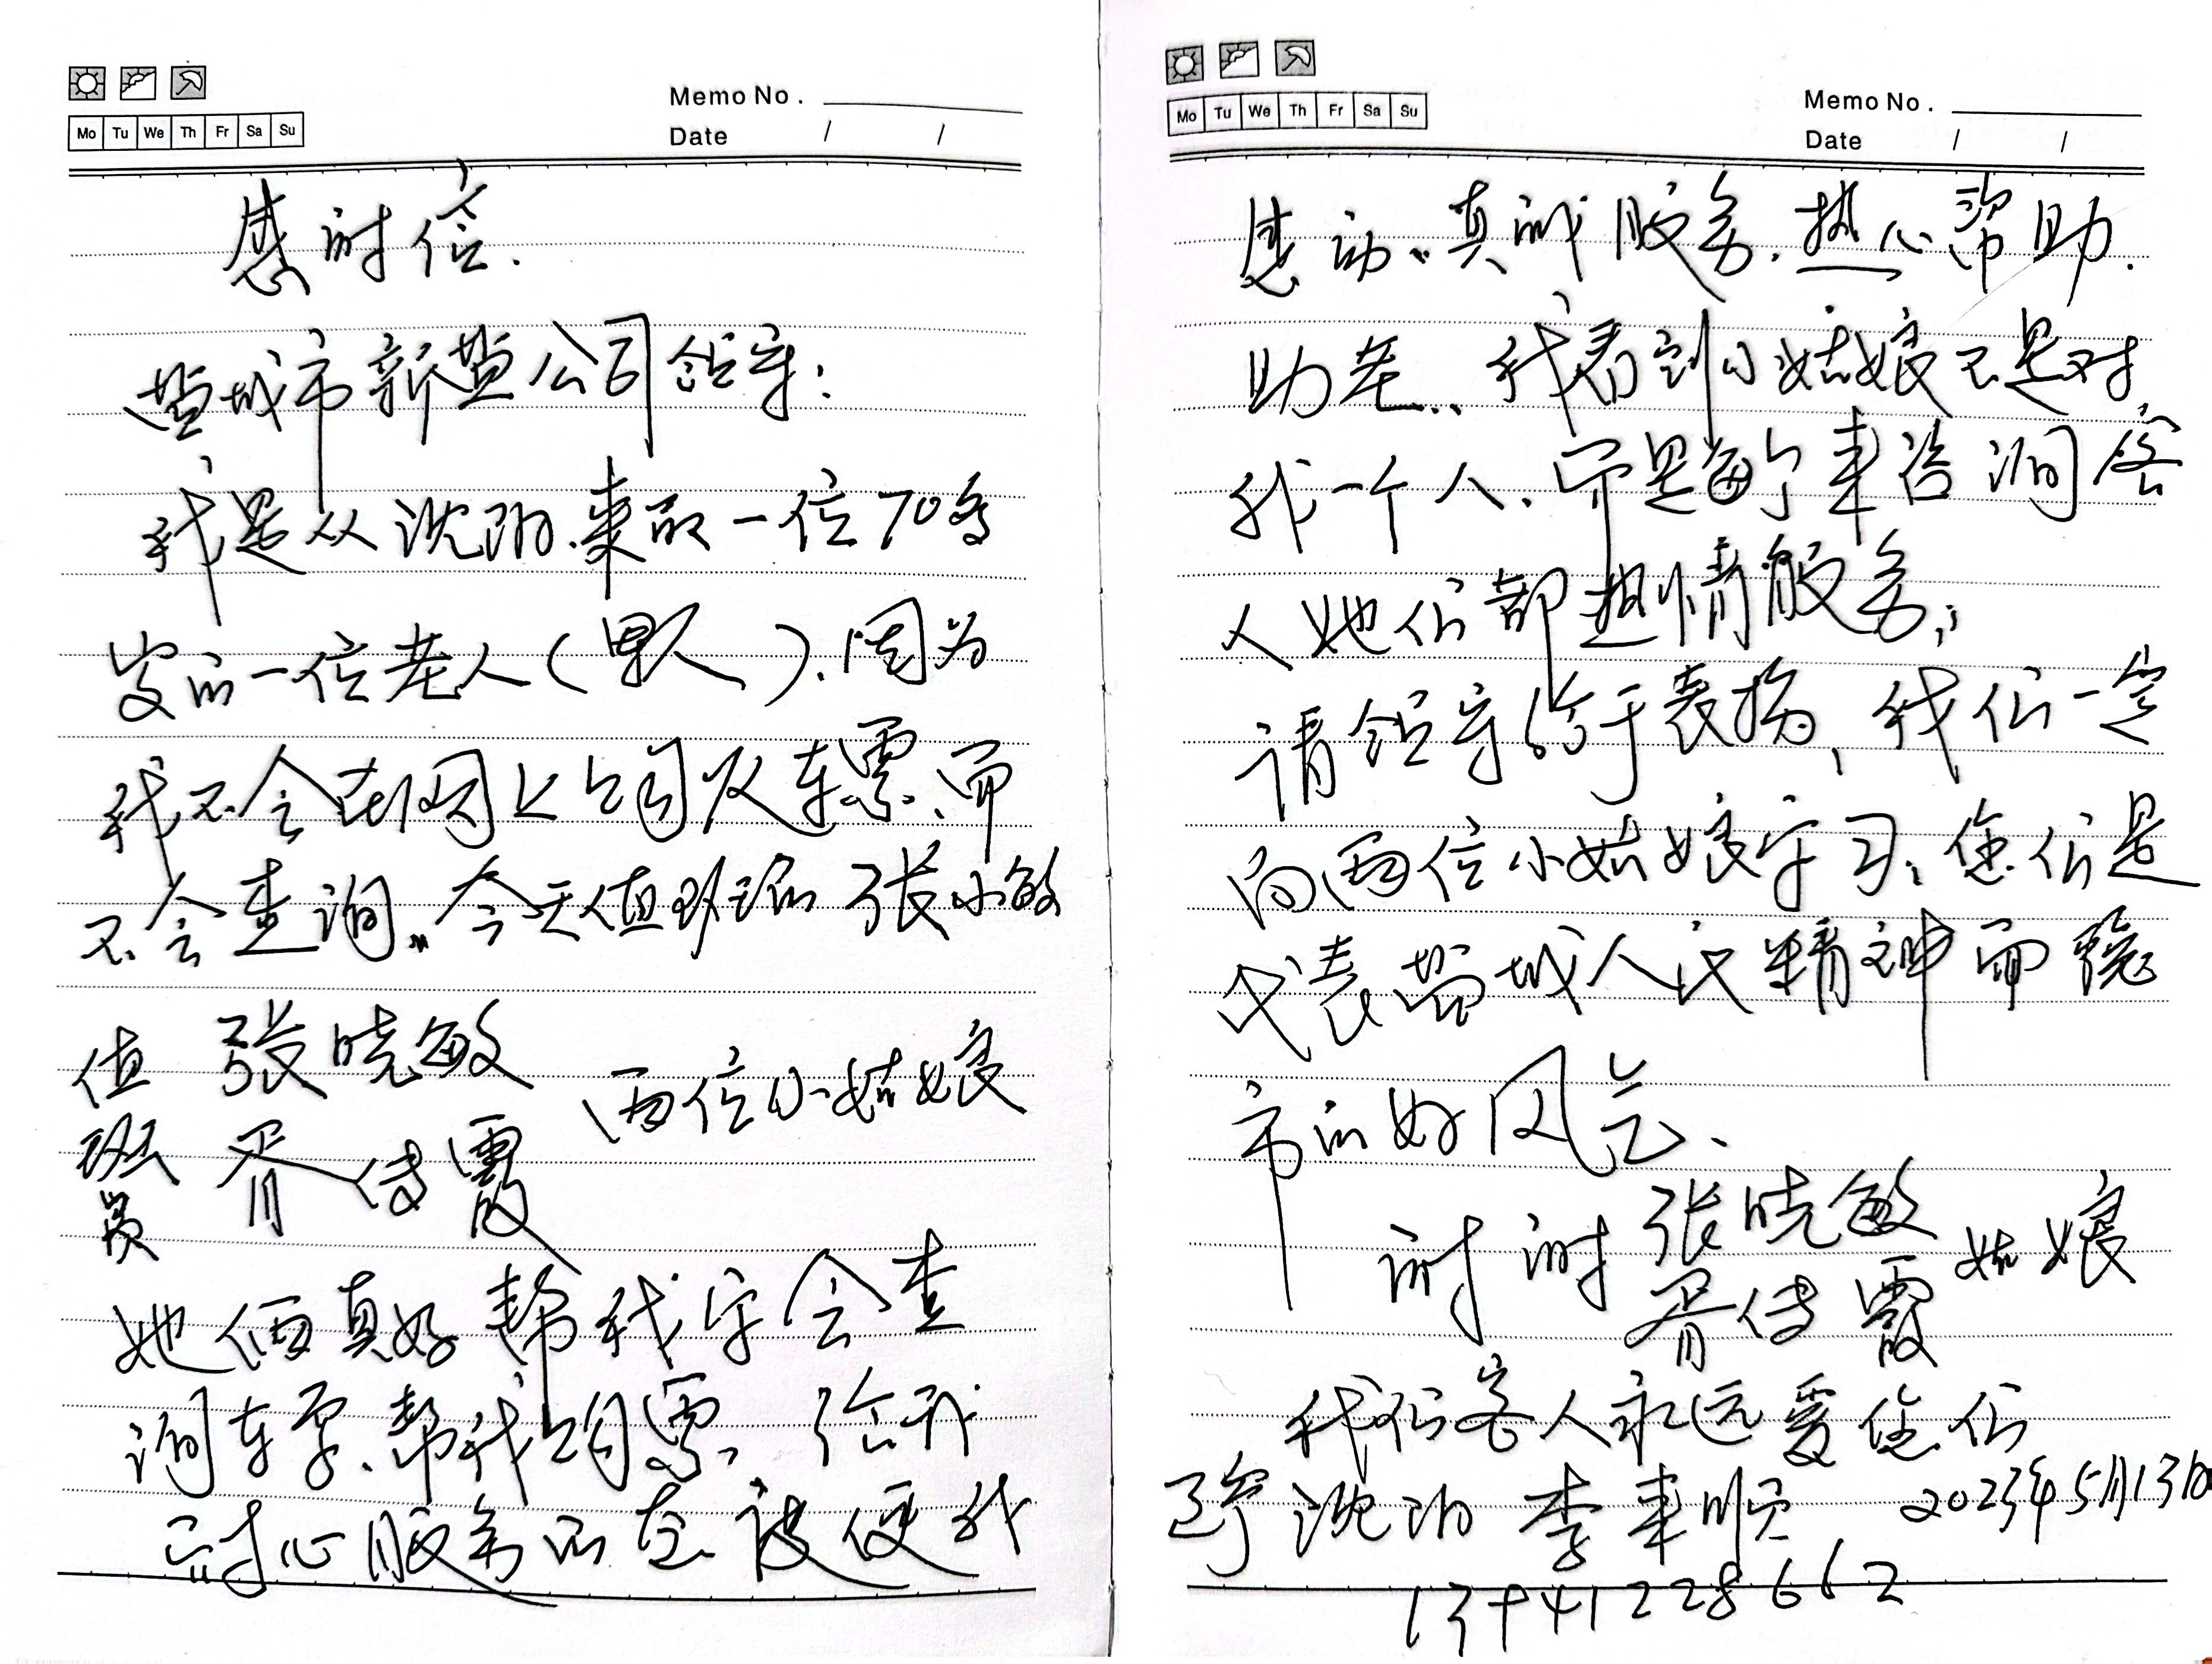 Memo No.
Mo Tu We Th Fr Sa Su
Date / /
感谢信.
盐城市新盐公司领导:
我是从沈阳.来的一位70多
岁的一位老人(男人).因为
我不会在网上购火车票、而
不会查询,,今天值班的张小敏
值班员 张晓敏 乔传霞 两位小姑娘
她俩真好帮我学会查
询车票、帮我购票、给我
耐心服务而在
Memo No.
Mo Tu We Th Fr Sa Su
Date / /
感动、真诚服务.热心帮助.
助老..我看到小姑娘不是对
我一个人、而是每个来咨询客
人她们都热情服务;
请领导给于表扬,我们一定
向两位小姑娘学习、您们是
代表盐城人民精神面貌
市的好风气、
谢谢 张晓敏 乔传霞 姑娘
我们客人永远爱您们
辽宁沈阳 李来顺 2023年5月13日
13941228662